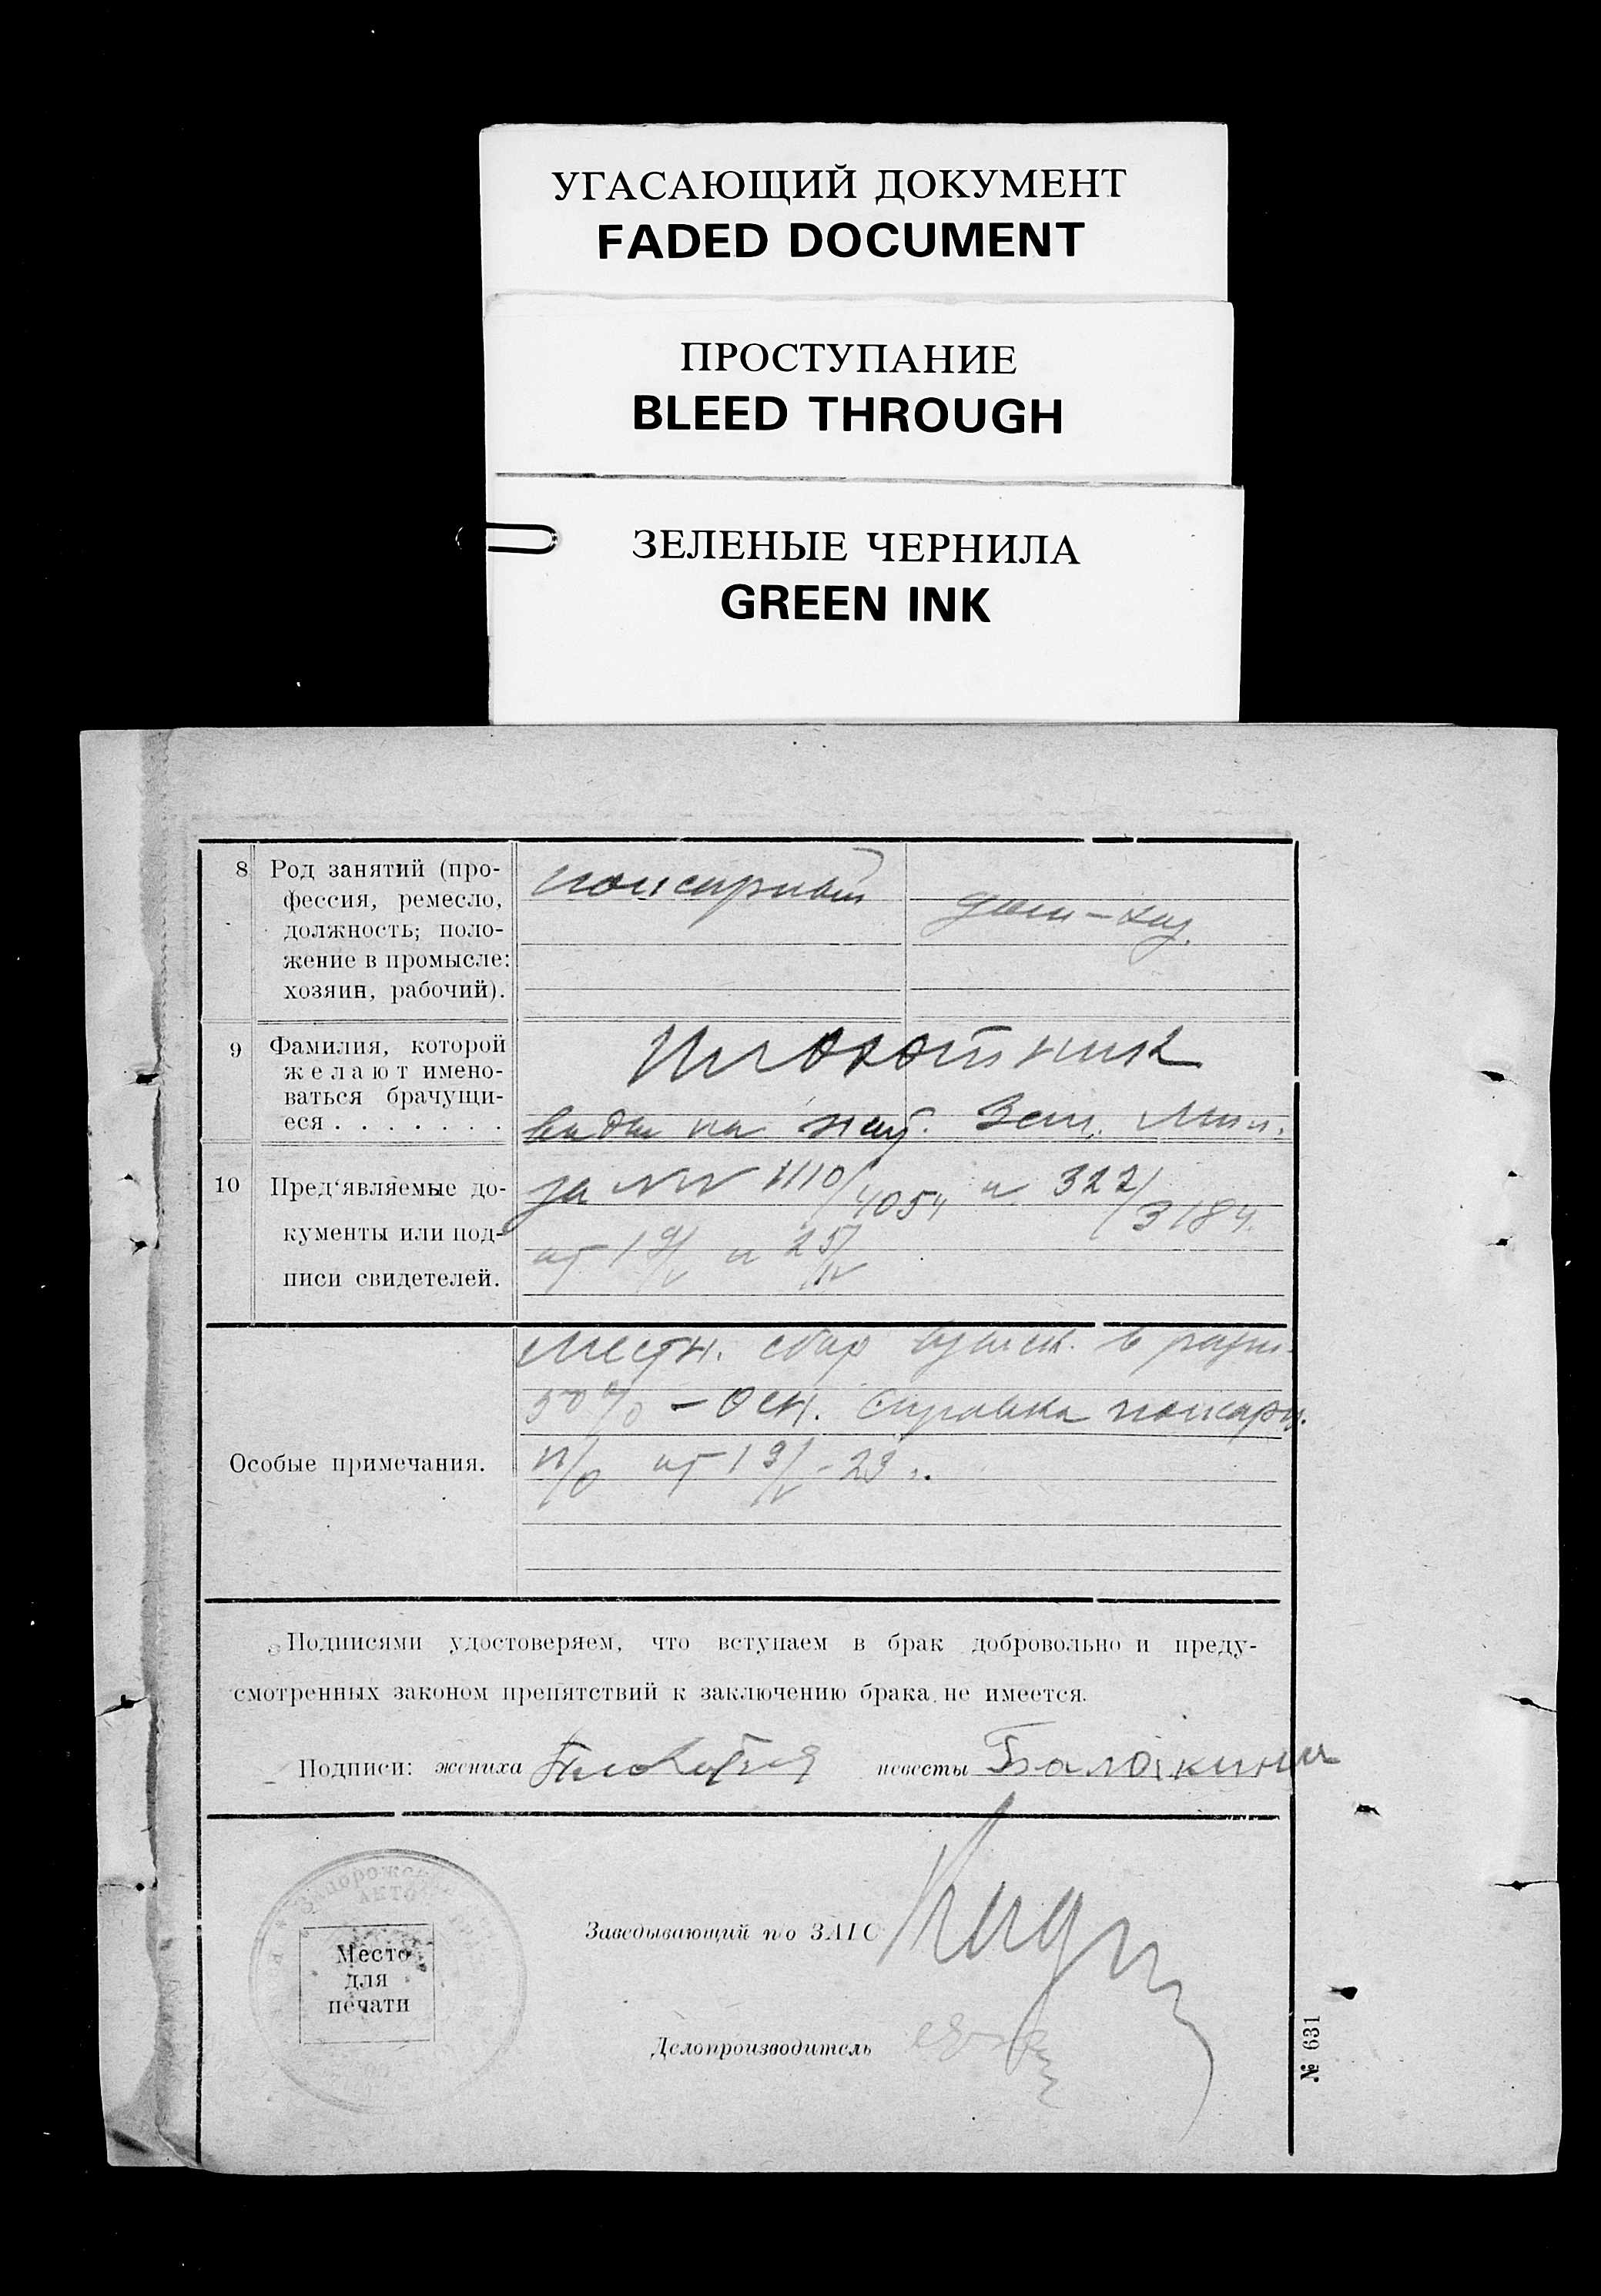 УГАСАЮЩИЙ ДОКУМЕНТ
FADED DOCUMENT
ПРОСТУПАНИЕ
BLEED THROUGH
ЗЕЛЕНЫЕ ЧЕРНИЛА
GREEN INK
8 Род занятий (про-
фессия, ремесло,
должность; поло-
жение в промысле:
хозяин, рабочий).
пожарный
дом-хоз.
9 Фамилия, которой
желают имено-
ваться брачущи-
еся . . . . . . .
10 Пред‘являемые до-
кументы или под-
писи свидетелей.
за NN 1110/4054 и 322/3184.
от 19/V и 25/IV
Особые примечания.
Местн. сбор в разм.
50% – Осн. справка пожарн.
п/о от 19/V - 29 г.
Подписями удостоверяем, что вступаем в брак добровольно и преду-
смотренных законом препятствий к заключению брака не имеется.
Подписи: жениха невесты Балакина
Место
для
печати
Заведывающий п/о ЗАГС
Делопроизводитель
№ 631